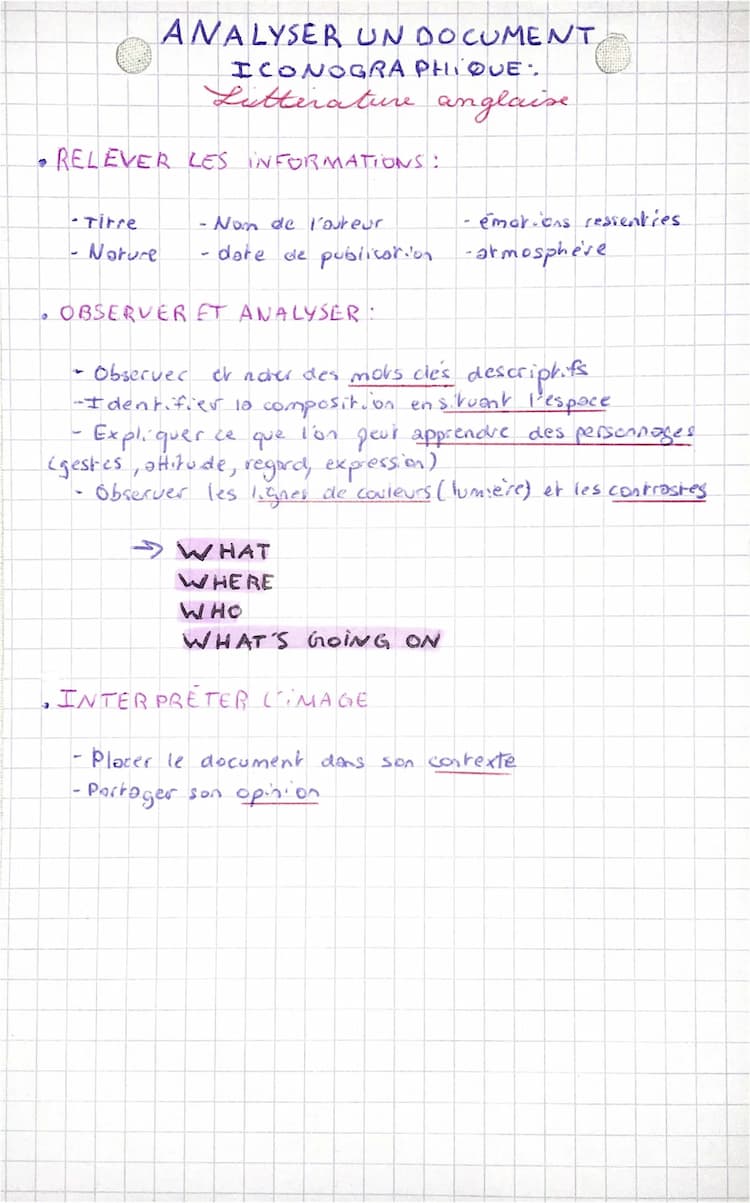 ANALYSER UN DOCUMENT
ICONOGRAPHIQUE:
Littérature anglaise
• RELEVER LES INFORMATIONS:
- Titre - Nom de l'auteur - émotions ressenties
- Nature - date de publication - atmosphère
• OBSERVER ET ANALYSER:
- Observer et noter des mots clés descriptifs
- Identifier la composition en situant l'espace
- Expliquer ce que l'on peut apprendre des personnages
(gestes, attitude, regard, expression)
- Observer les lignes de couleurs (lumière) et les contrastes
→ WHAT
WHERE
WHO
WHAT'S GOING ON
• INTERPRÉTER L'IMAGE
- Placer le document dans son contexte
- Partager son opinion